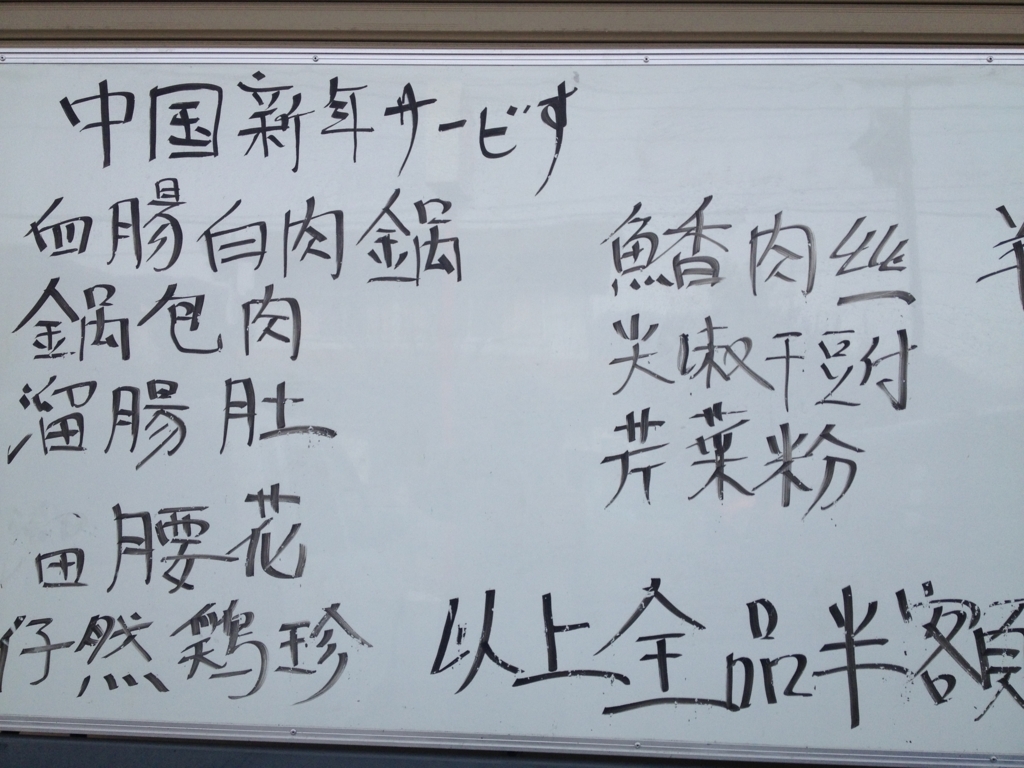 中国新年サービす
血腸白肉鍋
鍋包肉
溜腸肚
腰花
仔然鶏珍
魚香肉丝
尖椒干豆付
芹菜粉
以上全品半額